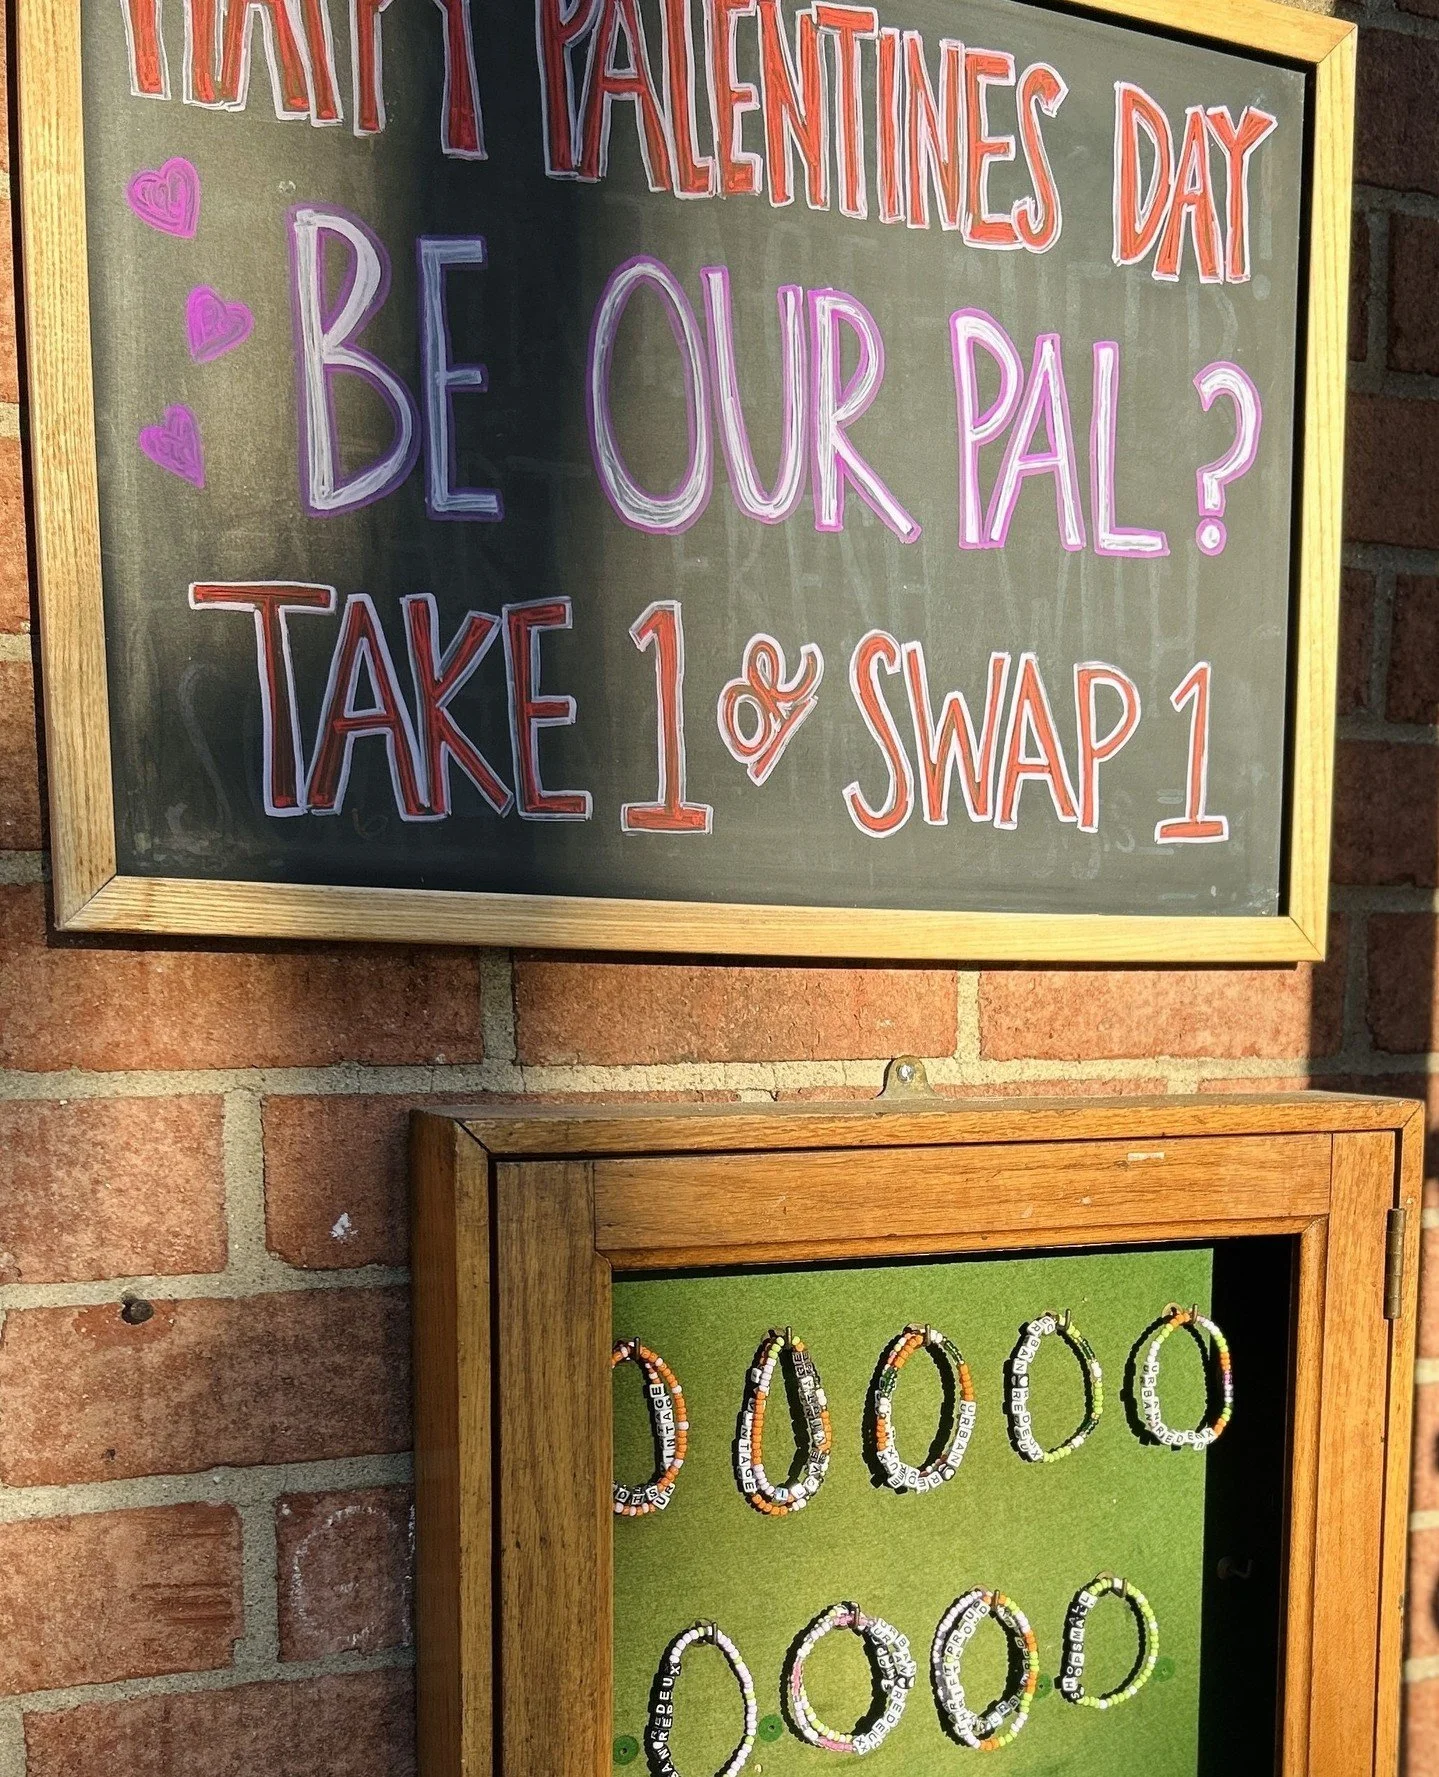 HAPPY PALENTINES DAY
BE OUR PAL?
TAKE 1 or SWAP 1
VINTAGE
URBAN
URBAN REDEUX
URBAN REDEUX
REDEUX
URBAN REDEUX
THRIFT PROUD
SHOP SMALL